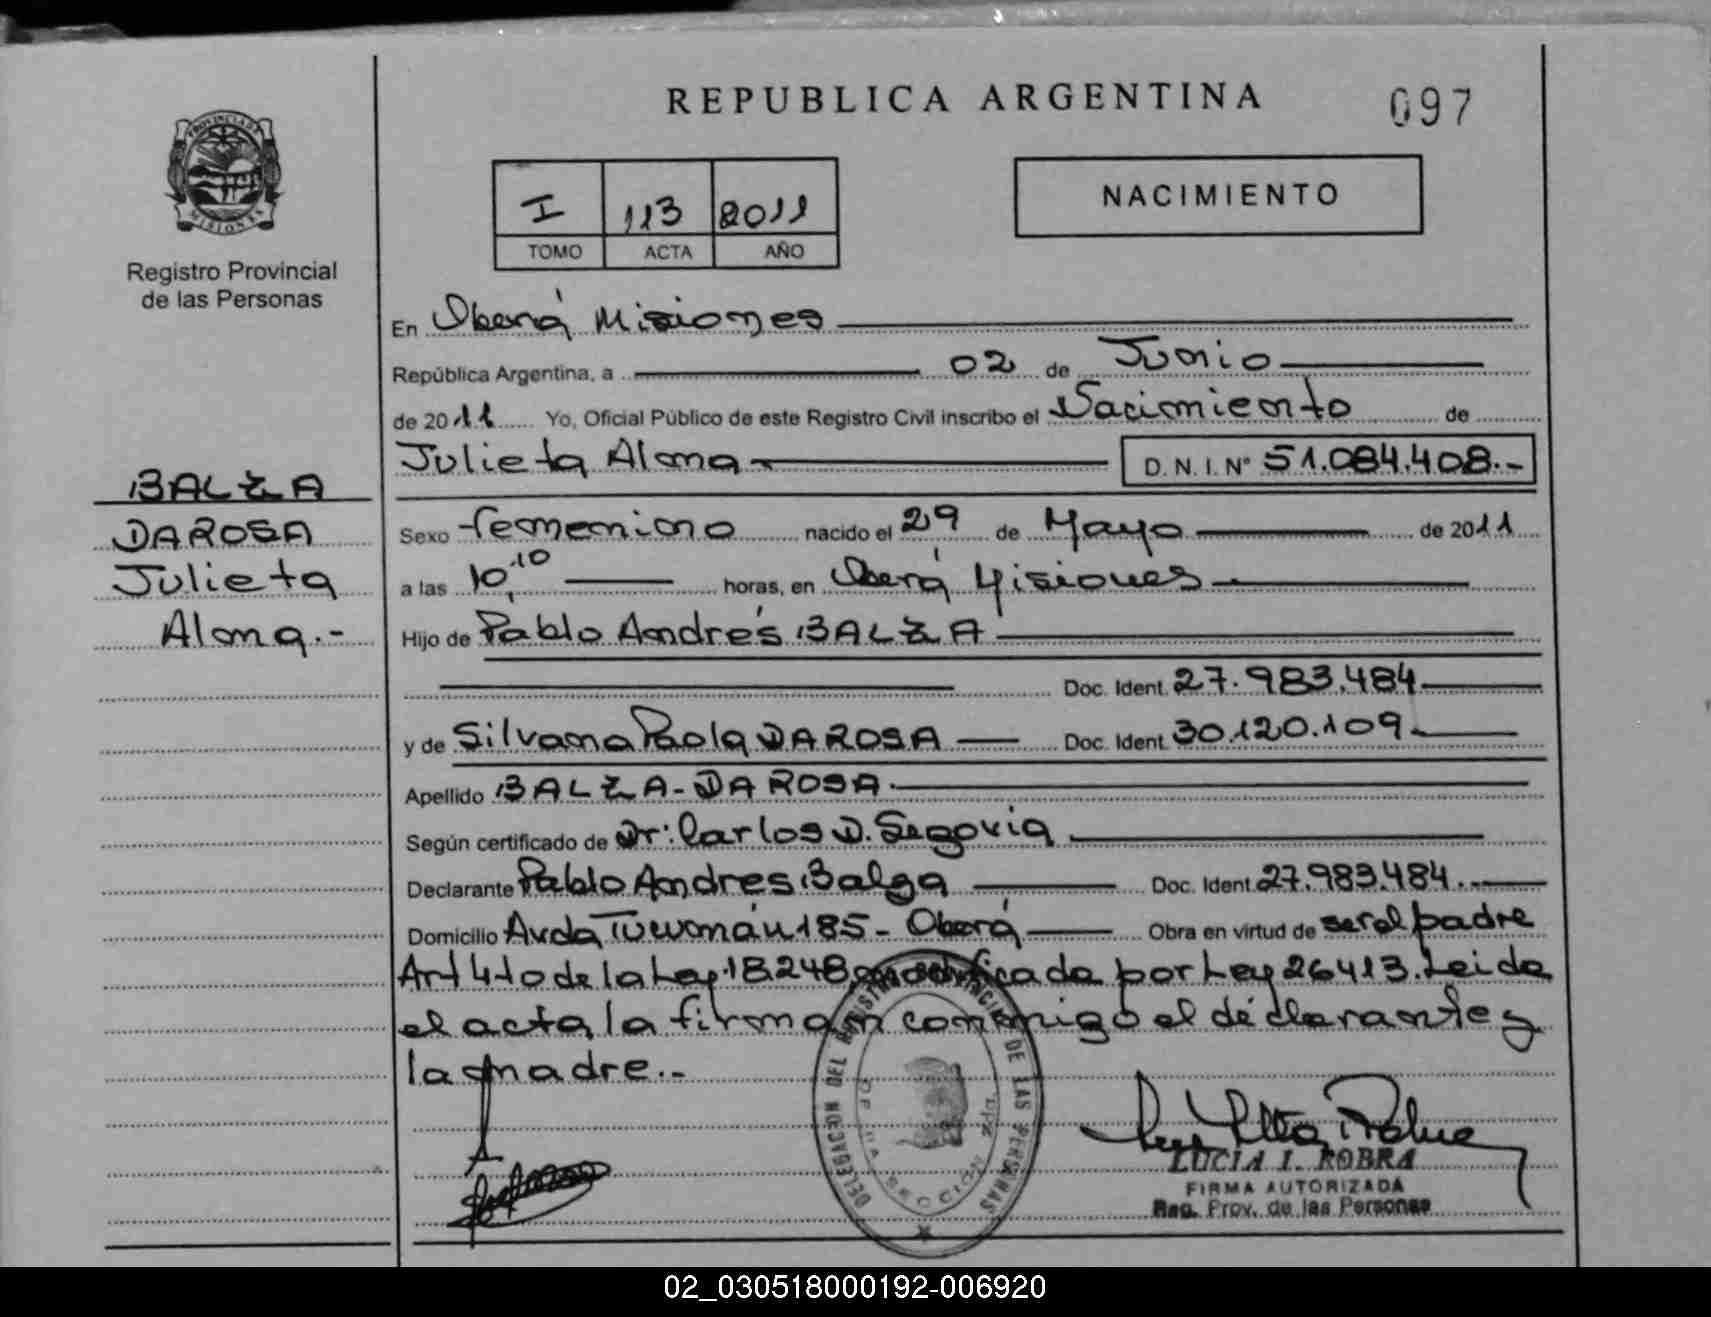 REPUBLICA ARGENTINA
097
PROVINCIA DE
MISIONES
Registro Provincial
de las Personas
I 113 2011
TOMO ACTA AÑO
NACIMIENTO
En Oberá Misiones
República Argentina, a 02 de Junio
de 2011 Yo, Oficial Público de este Registro Civil inscribo el Nacimiento de
Julieta Alma D. N. I. N° 51.084.408.-
BALZA
DA ROSA
Julieta
Alma.-
Sexo femenino nacido el 29 de Mayo de 2011
a las 10,10 horas, en Oberá Misiones
Hijo de Pablo Andrés BALZA
Doc. Ident. 27.983.484
y de Silvana Paola DA ROSA Doc. Ident. 30.120.109
Apellido BALZA-DA ROSA
Según certificado de Dr: Carlos D. Segovia
Declarante Pablo Andrés Balza Doc. Ident. 27.983.484.
Domicilio Avda Tucumán 185 - Oberá Obra en virtud de ser el padre
Art 4to de la Ley 18.248 modificada por Ley 26413. Leida
el acta, la firman conmigo el declarante y
la madre.-
DELEGACION DEL REGISTRO PROVINCIAL DE LAS PERSONAS
SECCION 2da.
LUCIA I. ROBRA
FIRMA AUTORIZADA
Reg. Prov. de las Personas
02_030518000192-006920